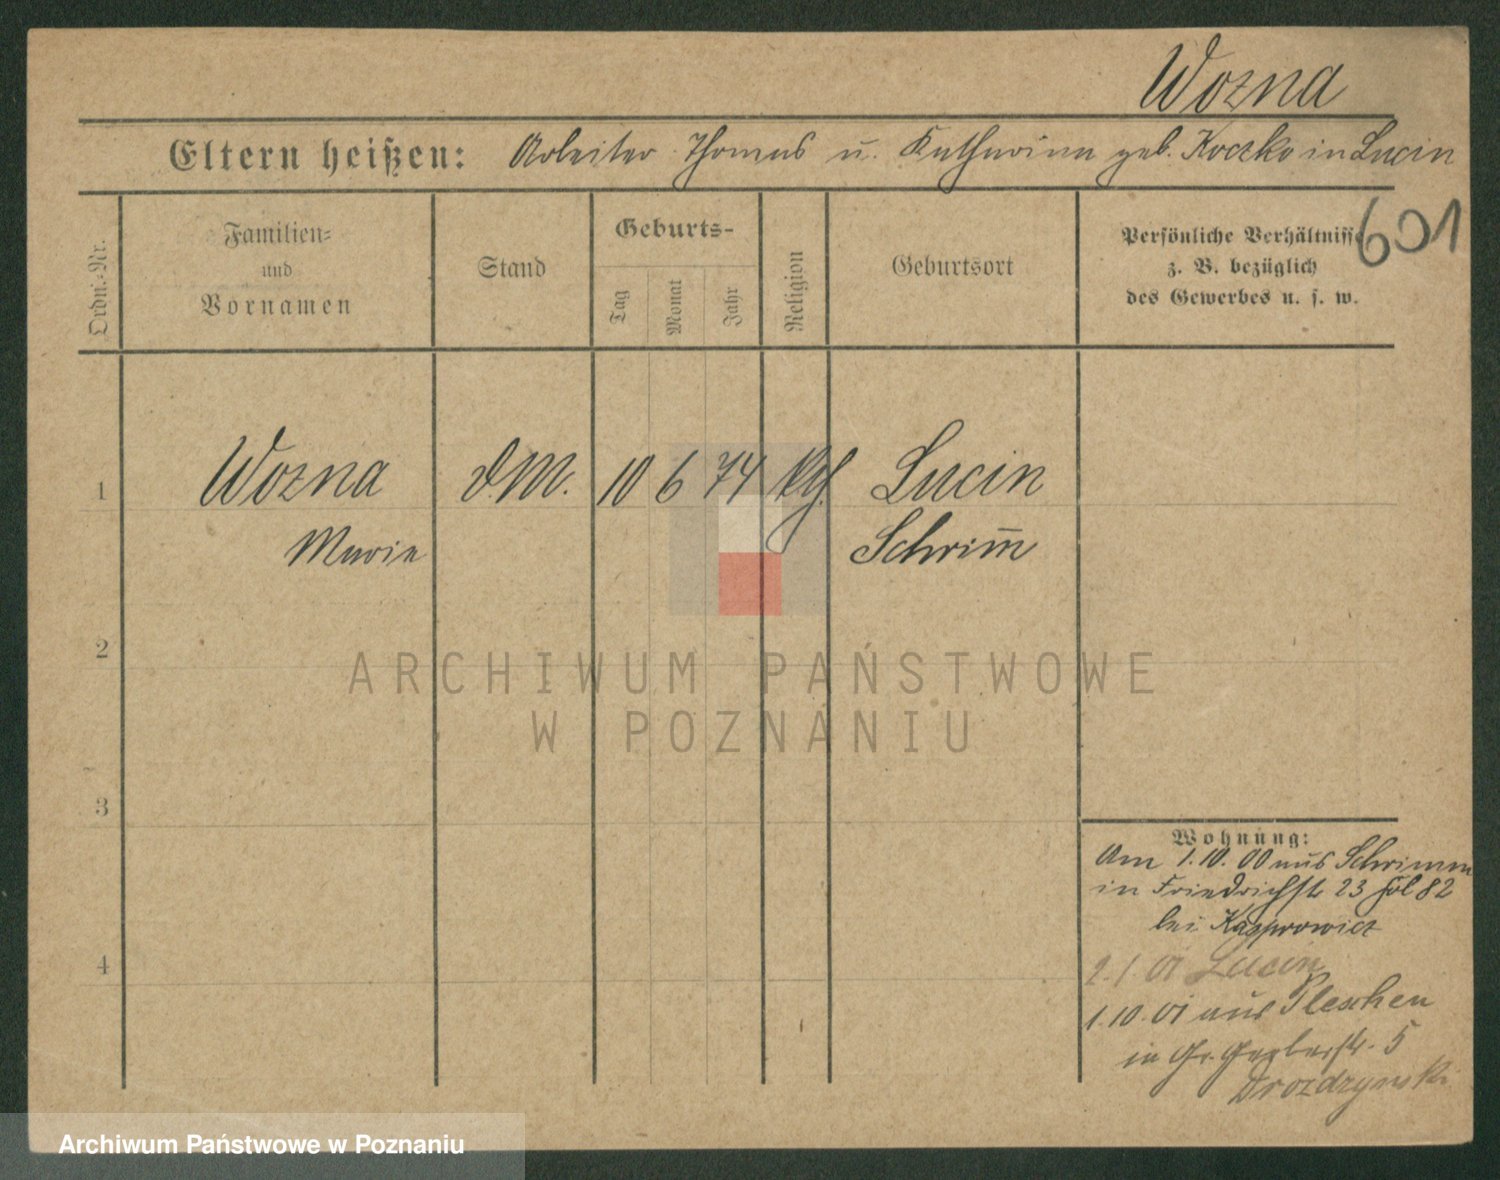 Wozna
Eltern heißen: Arbeiter Thomas u. Katharina geb. Koczko in Lucin
601
Ordn.-Nr.
Familien-
und
Vornamen
Stand
Geburts-
Tag
Monat
Jahr
Religion
Geburtsort
Persönliche Verhältnisse
z. B. bezüglich
des Gewerbes u. s. w.
1 Wozna d.M. 10 6 74 Lucin
Marie Schrim̅
2
ARCHIWUM PAŃSTWOWE
W POZNANIU
3
4
Wohnung:
Am 1.10.00 aus Schrimm
in Friedrichstr 23 82
bei Kasprowicz
2.1 01 Lucin
1.10.01 aus Pleschen
in Gr. Gerberstr. 5
Drozdzynski
Archiwum Państwowe w Poznaniu